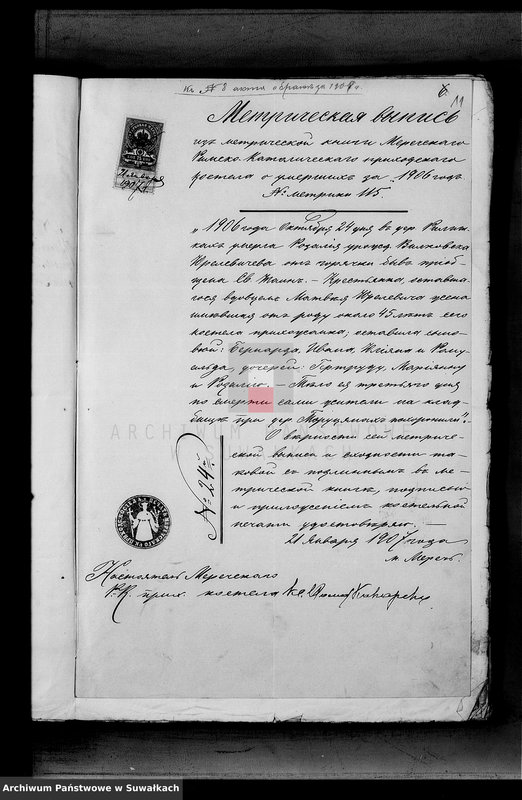 Къ № 8 акта о бракѣ за 1907 г.
11
Метрическая выпись
изъ метрической книги Меречскаго
Римско-Католическаго приходскаго
костела о умершихъ за 1906 годъ
№ метрики 115.
„1906 года Октября 24 дня въ дер.
умерла Розалія урожд.
Ирелевичева отъ горячки бывъ приоб-
щена Св. Таинъ. — Крестьянка, оставша-
гося вдовцемъ Матвѣя Ирелевича жена
имѣвшая отъ роду около 45 лѣтъ его
костела прихожанка, оставила сыно-
вей: Бернарда, Ивана, и Рому-
альда, дочерей: Гертруду, Маріанну
и Розалію. — Тѣло ея третьяго дня
по смерти сами жители на клад-
бищѣ при дер. похоронили".
О вѣрности сей метриче-
ской выписи и сходности та-
ковой съ подлинникомъ въ ме-
трической книгѣ, подписью
и приложеніемъ костельной
печати удостовѣряю. —
№ 24
21 Января 1907 года
м. Меречь.
Настоятель Меречскаго
Р. К. прих. костела кс.
ARCHIWUM PAŃSTWOWE
Archiwum Państwowe w Suwałkach